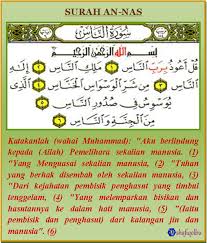 SURAH AN-NAS
سُورَةُ النَّاسِ
بِسْمِ اللهِ الرَّحْمٰنِ الرَّحِيْمِ
قُلْ أَعُوذُ بِرَبِّ النَّاسِ مَلِكِ النَّاسِ إِلَٰهِ
النَّاسِ مِن شَرِّ الْوَسْوَاسِ الْخَنَّاسِ الَّذِي
يُوَسْوِسُ فِي صُدُورِ النَّاسِ مِنَ الْجِنَّةِ
وَالنَّاسِ
Katakanlah (wahai Muhammad): "Aku berlindung
kepada (Allah) Pemelihara sekalian manusia. (1)
"Yang Menguasai sekalian manusia, (2) "Tuhan
yang berhak disembah oleh sekalian manusia, (3)
"Dari kejahatan pembisik penghasut yang timbul
tenggelam, (4) "Yang melemparkan bisikan dan
hasutannya ke dalam hati manusia, (5) "(Iaitu
pembisik dan penghasut) dari kalangan jin dan
manusia". (6)
shafiqolbu